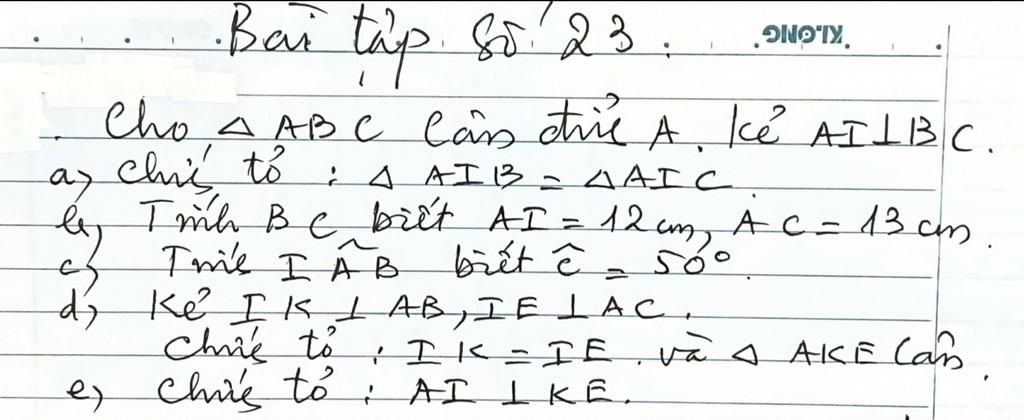 Bài tập số 23. KLONG
Cho △ ABC cân đỉnh A. Kẻ AI⊥BC.
a) Chứng tỏ : △ AIB = △AIC.
b, Tính BC biết AI = 12 cm, AC = 13 cm.
c) Tính IÂB biết ĉ = 50°.
d) Kẻ IK ⊥ AB, IE ⊥ AC.
Chứng tỏ : IK = IE. và △ AKE Cân.
e) Chứng tỏ : AI ⊥ KE.